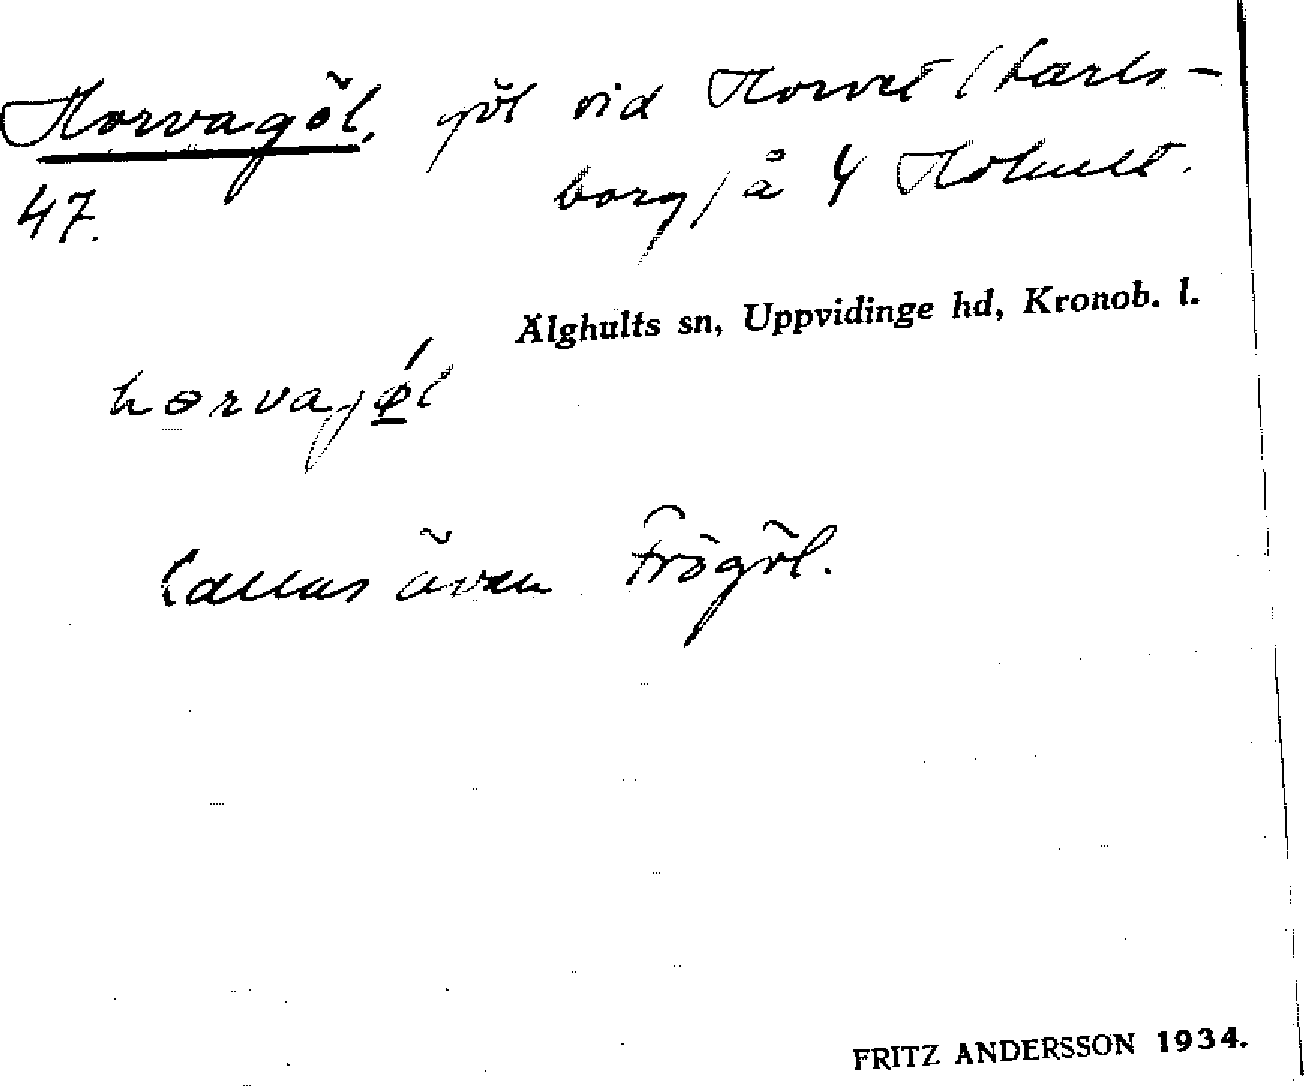 Horvagöl, göl vid Horvet (Karls-
borg) å 4 Hohult.
47.
Älghults sn, Uppvidinge hd, Kronob. l.
hɵrvajǿ̱l
Kallas även Frögöl.
FRITZ ANDERSSON 1934.